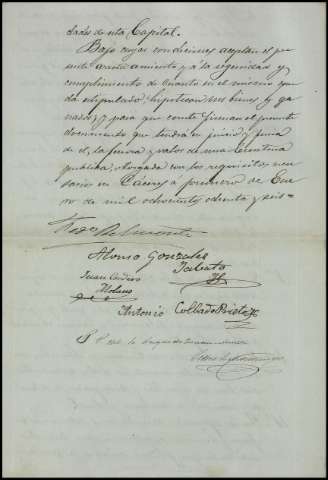 de esta Capital.
Bajo cuyas condiciones aceptan el pre
sente arrendamiento y á la seguridad y
cumplimiento de cuanto en el mismo que
da estipulado, hipotecan sus bienes y ga
nados; y para que conste firman el presente
documento que tendrá en juicio y fuera
de el, la fuerza y valor de una Escritura
publica, otorgada con los requisitos nece
sarios en Cáceres á primero de Ene
ro de mil ochocientos ochenta y seis=
Alonso Gonzales
Juan Cordero
Molano
Antonio Collado Prieto
P. P. de la